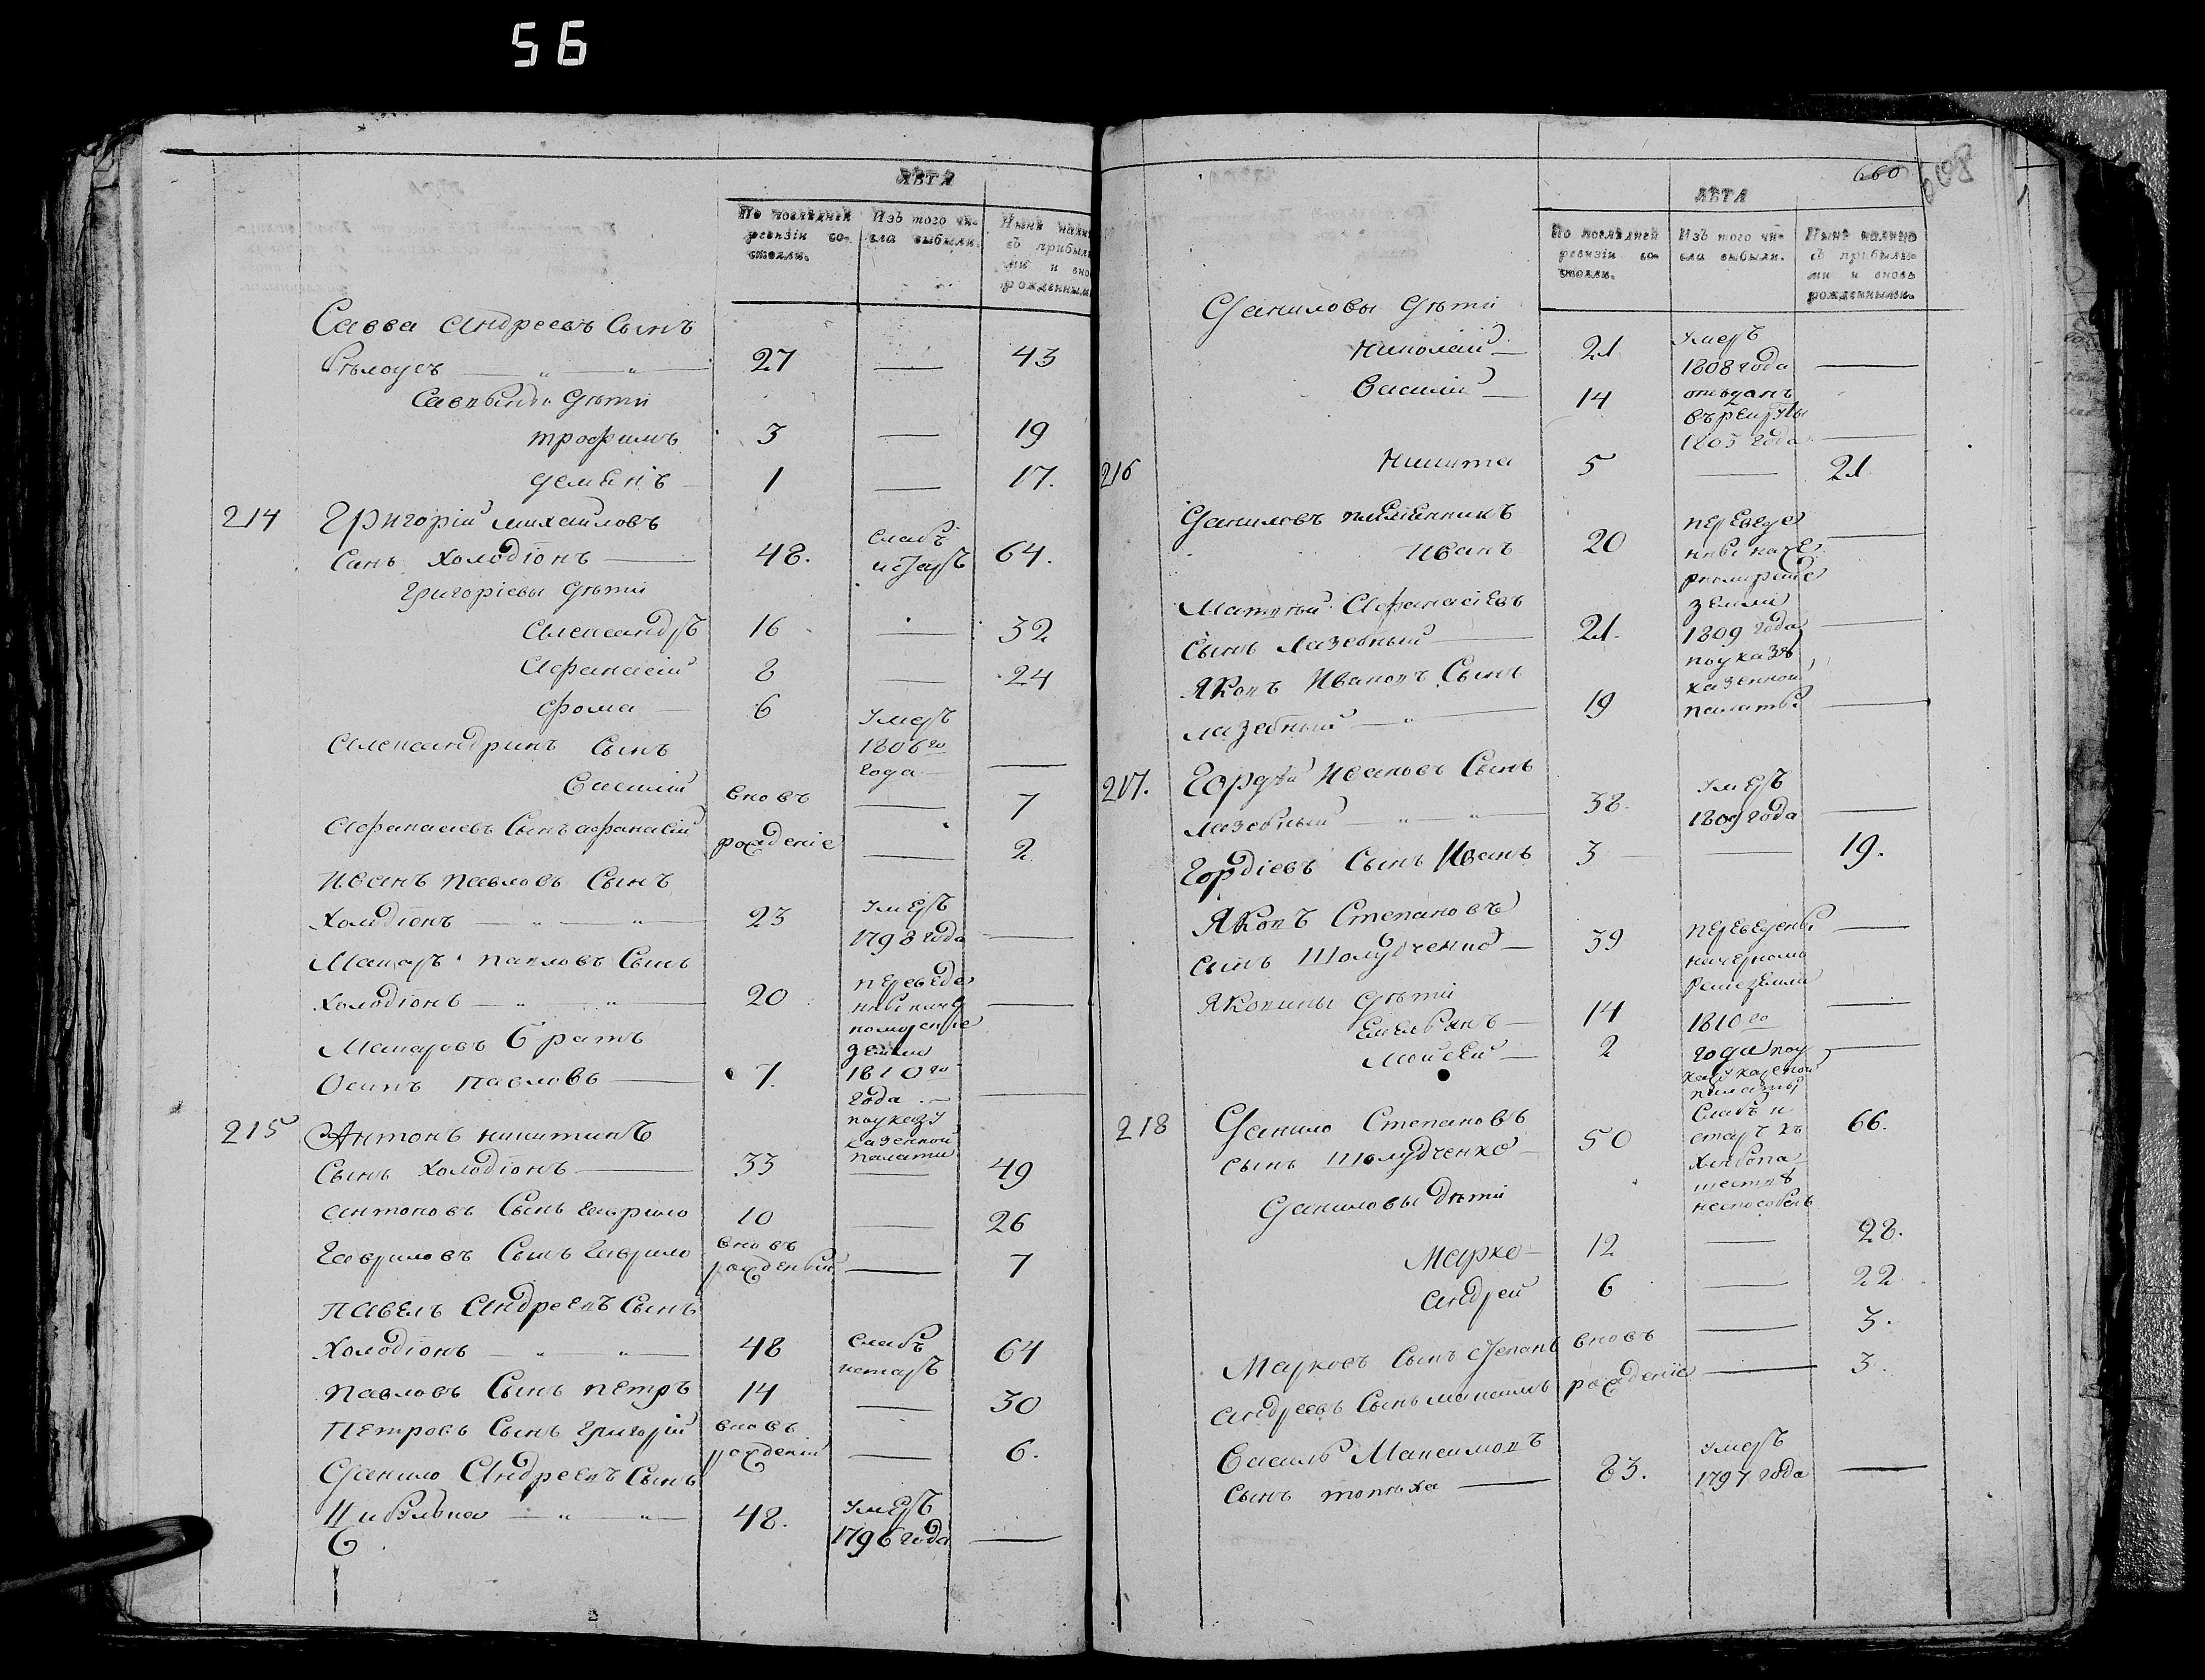 56
ЛѢТА
По послѣдней ревизіи состояли.
Изъ того числа выбыли.
Нынѣ налиц
съ прибылы
ми и вно
рожденным
Савва Андреевъ Сынъ
Бѣлоусъ 27 — 43
Саввины дѣти
трофимъ 3 — 19
демянъ 1 — 17.
214 Григорій михайловъ
Сынъ Холодіонъ 48. слабъ и старъ 64.
Григоріевы дѣти
Александръ 16 — 32
Афанасій 8 — 24
фома — 6 умеръ 1806го года —
Александринъ сынъ
Василій вновь — 7
Афанасиевъ Сынъ афанасій рожденіе — 2
Иванъ Павловъ Сынъ
Холодіонъ 23 умеръ 1798 года —
Макаръ павловъ Сынъ
Холодіонъ 20 переведе
ны начер
номорские
земли
1810го
года
по указу
казенной
палати
Макаровъ братъ
Осипъ павловъ 7. —
215 Антонъ никитинъ
Сынъ Холодіонъ 33 — 49
антоновъ Сынъ гаврило 10 — 26
Гавриловъ Сынъ гаврило вновь рожденый — 7
Павелъ Андреевъ Сынъ
Холодіонъ 48 слабъ и старъ 64
Павловъ Сынъ петръ 14 — 30
Петровъ Сынъ григорій вновь рожденій — 6.
Данило Андреевъ Сынъ
48. умеръ 1796 года —
6
660
608
ЛѢТА
По послѣдней ревизіи состояли.
Изъ того числа выбыли.
Нынѣ налицо
съ прибылы-
ми и вновь
рожденными.
Даниловы дѣти
Николай — 21 умеръ 1808 года —
Василий — 14 отдданъ
въ рекруты
1805 года —
216 Никита 5 — 21
Даниловъ племянникъ
Иванъ 20 переведе
ны наче
рноморские
земли
1809 года
по указу
казенной
палаты —
Матвѣй Афанасіевъ
Сынъ Лазебный 21. —
Яковъ Ивановъ Сынъ
лазебный 19 —
217. Гордѣй Ивановъ Сынъ
лазебный 38. умеръ 1809 года —
Гордіевъ Сынъ Иванъ 3 — 19.
Яковъ Степановъ
сынъ Шолудченко — 39 переведены
на черномо
рские земли
1810го
года по у
казу казеной
палаты —
Яковины дѣти
Емельянъ — 14 —
Мойсей — 2 —
218 Данило Степановъ
сынъ Шолудченко 50 слабъ и
старъ къ
хлебопа
шеству
неспособенъ 66.
Даниловы дѣти
Марко — 12 — 28.
андрей 6 — 22
Марковъ Сынъ степанъ вновь — 3.
андреевъ Сынъ максимъ рожденіе — 3.
Василь Максимовъ
сынъ топиха 83. умеръ 1797 года —